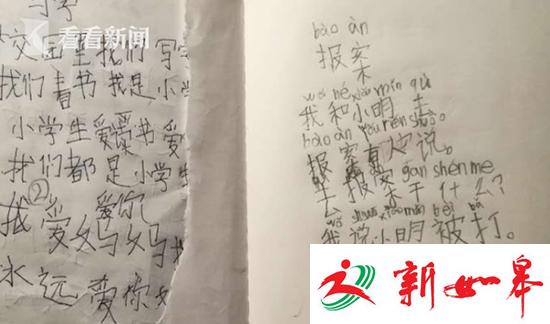 看看新闻
园里我们写字
我们看书 我是小学
小学生爱书 爱
我们都是小学生
②
爱你
我爱妈妈我
永远爱你
bào àn
报案
wǒ hé xiǎo mín qù
我和小明去
bào àn yǒu rén shuō
报案有人说。
gàn shén me
去报案干什么?
wǒ shuō xiǎo mín bèi dǎ
我说小明被打。
新如皋